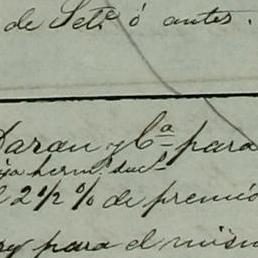 de Set.e ó antes.
Daran y C.a para
herm.s suc.s
2 1/2 % de premio
para el mism